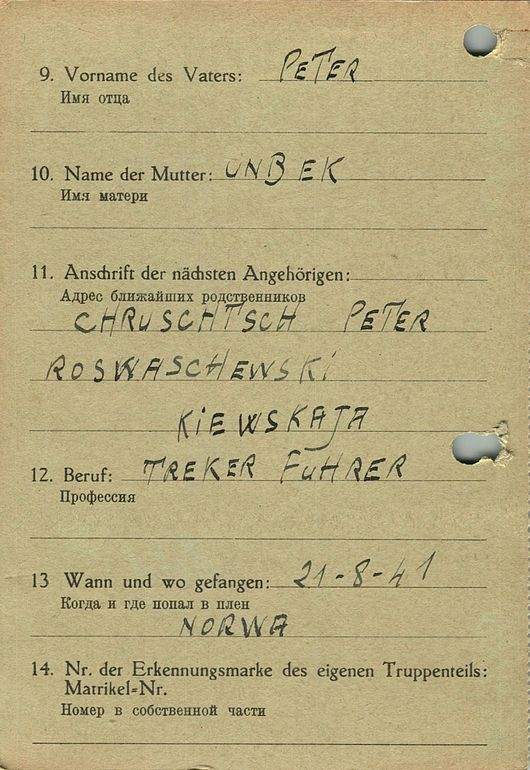 9. Vorname des Vaters: PETER
Имя отца
10. Name der Mutter: UNBEK
Имя матери
11. Anschrift der nächsten Angehörigen:
Адрес ближайших родственников
CHRUSCHTSCH PETER
ROSWASCHEWSKi
KiEWSKAJA
12. Beruf: TREKER FUHRER
Профессия
13 Wann und wo gefangen: 21-8-41
Когда и где попал в плен
NORWA
14. Nr. der Erkennungsmarke des eigenen Truppenteils:
Matrikel-Nr.
Номер в собственной части